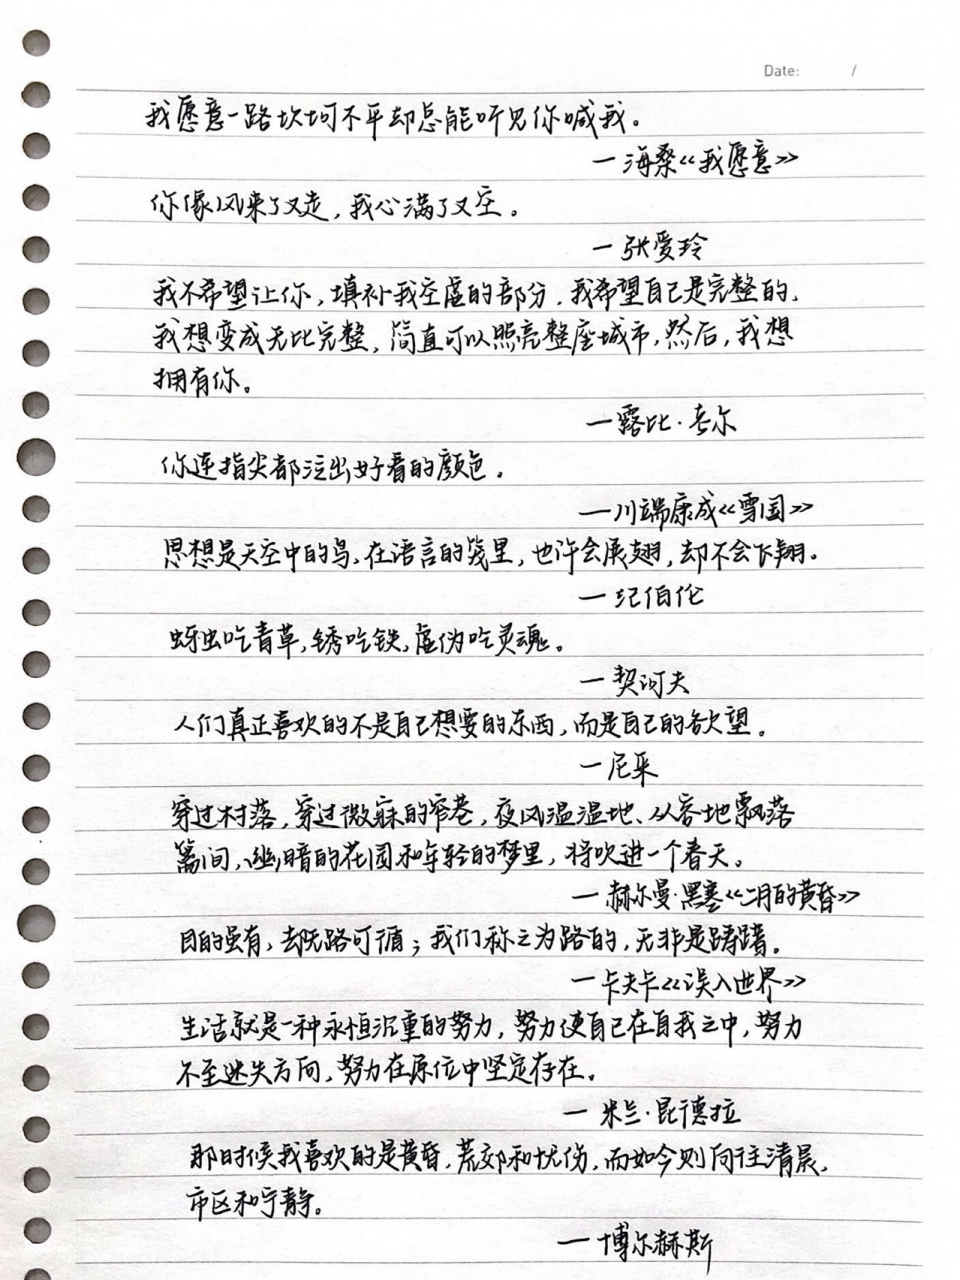 Date: /
我愿意一路坎坷不平却总能听见你喊我。
—海桑《我愿意》
你像风来了又走，我心满了又空。
—张爱玲
我不希望让你，填补我空虚的部分，我希望自己是完整的，
我想变成无比完整，简直可以照亮整座城市，然后，我想
拥有你。
—露比·考尔
你连指尖都泛出好看的颜色。
—川端康成《雪国》
思想是天空中的鸟，在语言的笼里，也许会展翅，却不会飞翔。
—纪伯伦
蚜虫吃青草，锈吃铁，虚伪吃灵魂。
—契诃夫
人们真正喜欢的不是自己想要的东西，而是自己的欲望。
—尼采
穿过村落，穿过微寐的窄巷，夜风温温地、从容地飘落
篱间，幽暗的花园和年轻的梦里，将吹进一个春天。
—赫尔曼·黑塞《二月的黄昏》
目的虽有，却无路可循；我们称之为路的，无非是踌躇。
—卡夫卡《误入世界》
生活就是一种永恒沉重的努力，努力使自己在自我之中，努力
不至迷失方向，努力在原位中坚定存在。
—米兰·昆德拉
那时候我喜欢的是黄昏，荒郊和忧伤，而如今则向往清晨，
市区和宁静。
—博尔赫斯